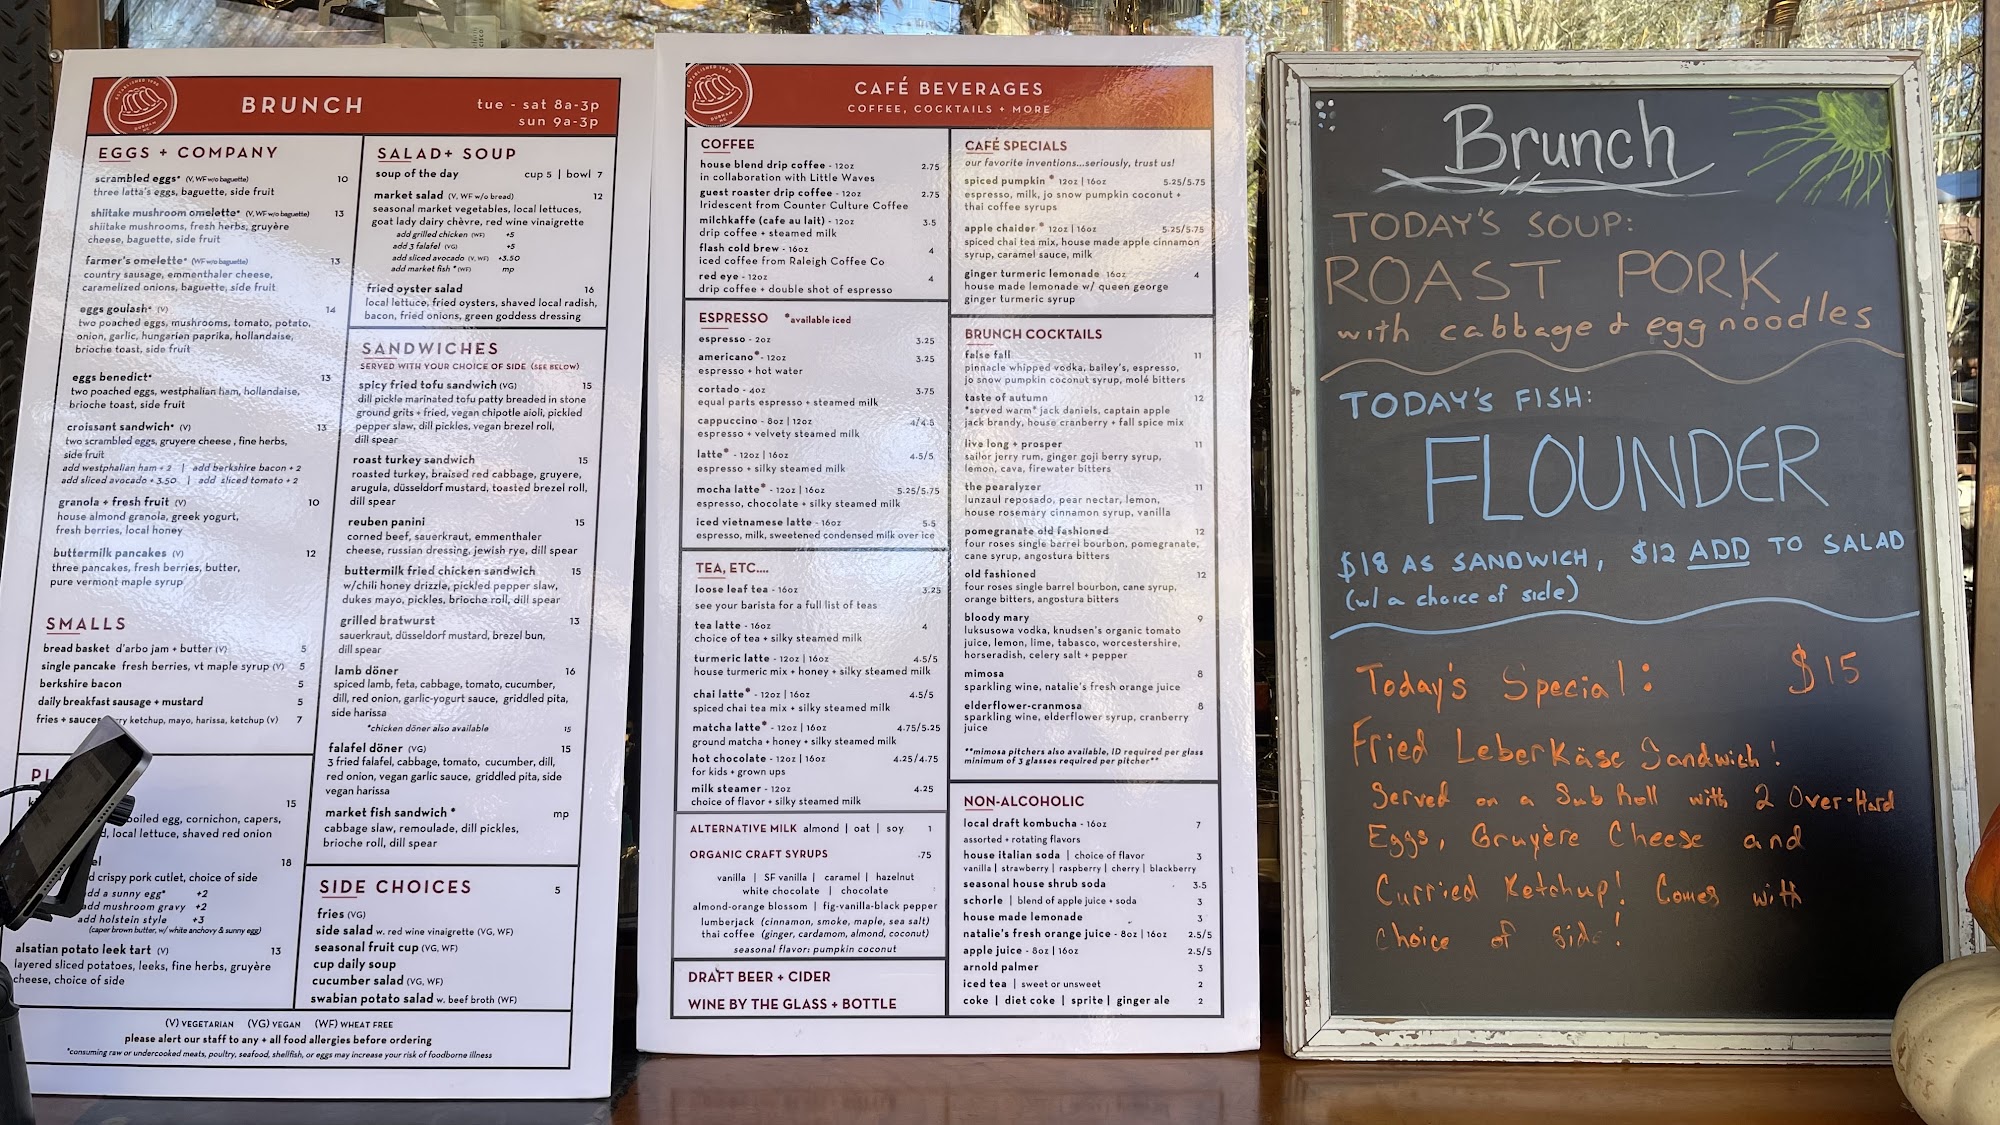 BRUNCH
tue - sat 8a-3p
sun 9a-3p
EGGS + COMPANY
scrambled eggs* (V, WF w/o baguette) 10
three latta's eggs, baguette, side fruit
shiitake mushroom omelette* (V, WF w/o baguette) 13
shiitake mushrooms, fresh herbs, gruyère
cheese, baguette, side fruit
farmer's omelette* (WF w/o baguette) 13
country sausage, emmenthaler cheese,
caramelized onions, baguette, side fruit
eggs goulash* (V) 14
two poached eggs, mushrooms, tomato, potato,
onion, garlic, hungarian paprika, hollandaise,
brioche toast, side fruit
eggs benedict* 13
two poached eggs, westphalian ham, hollandaise,
brioche toast, side fruit
croissant sandwich* (V) 13
two scrambled eggs, gruyere cheese , fine herbs,
side fruit
add westphalian ham + 2 | add berkshire bacon + 2
add sliced avocado + 3.50 | add sliced tomato + 2
granola + fresh fruit (V) 10
house almond granola, greek yogurt,
fresh berries, local honey
buttermilk pancakes (V) 12
three pancakes, fresh berries, butter,
pure vermont maple syrup
SMALLS
bread basket d'arbo jam + butter (V) 5
single pancake fresh berries, vt maple syrup (V) 5
berkshire bacon 5
daily breakfast sausage + mustard 5
fries + sauces ketchup, mayo, harissa, ketchup (V) 7
15
boiled egg, cornichon, capers,
local lettuce, shaved red onion
18
crispy pork cutlet, choice of side
add a sunny egg* +2
add mushroom gravy +2
add holstein style +3
(caper brown butter, w/ white anchovy & sunny egg)
alsatian potato leek tart (V) 13
layered sliced potatoes, leeks, fine herbs, gruyère
cheese, choice of side
SALAD+ SOUP
soup of the day cup 5 | bowl 7
market salad (V, WF w/o bread) 12
seasonal market vegetables, local lettuces,
goat lady dairy chèvre, red wine vinaigrette
add grilled chicken (WF) +5
add 3 falafel (VG) +5
add sliced avocado (V, WF) +3.50
add market fish * (WF) mp
fried oyster salad 16
local lettuce, fried oysters, shaved local radish,
bacon, fried onions, green goddess dressing
SANDWICHES
SERVED WITH YOUR CHOICE OF SIDE (SEE BELOW)
spicy fried tofu sandwich (VG) 15
dill pickle marinated tofu patty breaded in stone
ground grits + fried, vegan chipotle aioli, pickled
pepper slaw, dill pickles, vegan brezel roll,
dill spear
roast turkey sandwich 15
roasted turkey, braised red cabbage, gruyere,
arugula, düsseldorf mustard, toasted brezel roll,
dill spear
reuben panini 15
corned beef, sauerkraut, emmenthaler
cheese, russian dressing, jewish rye, dill spear
buttermilk fried chicken sandwich 15
w/chili honey drizzle, pickled pepper slaw,
dukes mayo, pickles, brioche roll, dill spear
grilled bratwurst 13
sauerkraut, düsseldorf mustard, brezel bun,
dill spear
lamb döner 16
spiced lamb, feta, cabbage, tomato, cucumber,
dill, red onion, garlic-yogurt sauce, griddled pita,
side harissa
*chicken döner also available 15
falafel döner (VG) 15
3 fried falafel, cabbage, tomato, cucumber, dill,
red onion, vegan garlic sauce, griddled pita, side
vegan harissa
market fish sandwich * mp
cabbage slaw, remoulade, dill pickles,
brioche roll, dill spear
SIDE CHOICES 5
fries (VG)
side salad w. red wine vinaigrette (VG, WF)
seasonal fruit cup (VG, WF)
cup daily soup
cucumber salad (VG, WF)
swabian potato salad w. beef broth (WF)
(V) VEGETARIAN (VG) VEGAN (WF) WHEAT FREE
please alert our staff to any + all food allergies before ordering
*consuming raw or undercooked meats, poultry, seafood, shellfish, or eggs may increase your risk of foodborne illness
CAFÉ BEVERAGES
COFFEE, COCKTAILS + MORE
COFFEE
house blend drip coffee - 12oz 2.75
in collaboration with Little Waves
guest roaster drip coffee - 12oz 2.75
Iridescent from Counter Culture Coffee
milchkaffe (cafe au lait) - 12oz 3.5
drip coffee + steamed milk
flash cold brew - 16oz 4
iced coffee from Raleigh Coffee Co
red eye - 12oz 4
drip coffee + double shot of espresso
ESPRESSO *available iced
espresso - 2oz 3.25
americano* - 12oz 3.25
espresso + hot water
cortado - 4oz 3.75
equal parts espresso + steamed milk
cappuccino - 8oz | 12oz 4/4.5
espresso + velvety steamed milk
latte* - 12oz | 16oz 4.5/5
espresso + silky steamed milk
mocha latte* - 12oz | 16oz 5.25/5.75
espresso, chocolate + silky steamed milk
iced vietnamese latte - 16oz 5.5
espresso, milk, sweetened condensed milk over ice
TEA, ETC....
loose leaf tea - 16oz 3.25
see your barista for a full list of teas
tea latte - 16oz 4
choice of tea + silky steamed milk
turmeric latte - 12oz | 16oz 4.5/5
house turmeric mix + honey + silky steamed milk
chai latte* - 12oz | 16oz 4.5/5
spiced chai tea mix + silky steamed milk
matcha latte* - 12oz | 16oz 4.75/5.25
ground matcha + honey + silky steamed milk
hot chocolate - 12oz | 16oz 4.25/4.75
for kids + grown ups
milk steamer - 12oz 4.25
choice of flavor + silky steamed milk
ALTERNATIVE MILK almond | oat | soy 1
ORGANIC CRAFT SYRUPS .75
vanilla | SF vanilla | caramel | hazelnut
white chocolate | chocolate
almond-orange blossom | fig-vanilla-black pepper
lumberjack (cinnamon, smoke, maple, sea salt)
thai coffee (ginger, cardamom, almond, coconut)
seasonal flavor: pumpkin coconut
DRAFT BEER + CIDER
WINE BY THE GLASS + BOTTLE
CAFÉ SPECIALS
our favorite inventions...seriously, trust us!
spiced pumpkin * 12oz | 16oz 5.25/5.75
espresso, milk, jo snow pumpkin coconut +
thai coffee syrups
apple chaider * 12oz | 16oz 5.25/5.75
spiced chai tea mix, house made apple cinnamon
syrup, caramel sauce, milk
ginger turmeric lemonade 16oz 4
house made lemonade w/ queen george
ginger turmeric syrup
BRUNCH COCKTAILS
false fall 11
pinnacle whipped vodka, bailey's, espresso,
jo snow pumpkin coconut syrup, molé bitters
taste of autumn 12
*served warm* jack daniels, captain apple
jack brandy, house cranberry + fall spice mix
live long + prosper 11
sailor jerry rum, ginger goji berry syrup,
lemon, cava, firewater bitters
the pearalyzer 11
lunzaul reposado, pear nectar, lemon,
house rosemary cinnamon syrup, vanilla
pomegranate old fashioned 12
four roses single barrel bourbon, pomegranate,
cane syrup, angostura bitters
old fashioned 12
four roses single barrel bourbon, cane syrup,
orange bitters, angostura bitters
bloody mary 9
luksusowa vodka, knudsen's organic tomato
juice, lemon, lime, tabasco, worcestershire,
horseradish, celery salt + pepper
mimosa 8
sparkling wine, natalie's fresh orange juice
elderflower-cranmosa 8
sparkling wine, elderflower syrup, cranberry
juice
**mimosa pitchers also available, ID required per glass
minimum of 3 glasses required per pitcher**
NON-ALCOHOLIC
local draft kombucha - 16oz 7
assorted + rotating flavors
house italian soda | choice of flavor 3
vanilla | strawberry | raspberry | cherry | blackberry
seasonal house shrub soda 3.5
schorle | blend of apple juice + soda 3
house made lemonade 3
natalie's fresh orange juice - 8oz | 16oz 2.5/5
apple juice - 8oz | 16oz 2.5/5
arnold palmer 3
iced tea | sweet or unsweet 2
coke | diet coke | sprite | ginger ale 2
Brunch
TODAY'S SOUP:
ROAST PORK
with cabbage & egg noodles
TODAY'S FISH:
FLOUNDER
$18 AS SANDWICH, $12 ADD TO SALAD
(w/ a choice of side)
Today's Special: $15
Fried Leberkäse Sandwich!
Served on a Sub Roll with 2 Over-Hard
Eggs, Gruyère Cheese and
Curried Ketchup! Comes with
choice of side!